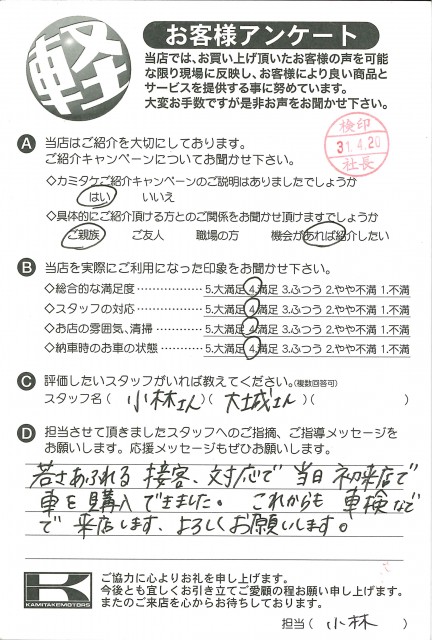 軽
お客様アンケート
当店では、お買い上げ頂いたお客様の声を可能
な限り現場に反映し、お客様により良い商品と
サービスを提供する事に努めています。
大変お手数ですが是非お声をお聞かせ下さい。
検印
31.4.20
社長
A 当店はご紹介を大切にしております。
ご紹介キャンペーンについてお聞かせ下さい。
◇カミタケご紹介キャンペーンのご説明はありましたでしょうか
はい いいえ
◇具体的にご紹介頂ける方とのご関係をお聞かせ頂けますでしょうか
ご親族 ご友人 職場の方 機会があれば紹介したい
B 当店を実際にご利用になった印象をお聞かせ下さい。
◇総合的な満足度 ………… 5.大満足 4.満足 3.ふつう 2.やや不満 1.不満
◇スタッフの対応 ………… 5.大満足 4.満足 3.ふつう 2.やや不満 1.不満
◇お店の雰囲気、清掃 ……… 5.大満足 4.満足 3.ふつう 2.やや不満 1.不満
◇納車時のお車の状態 ……… 5.大満足 4.満足 3.ふつう 2.やや不満 1.不満
C 評価したいスタッフがいれば教えてください。(複数回答可)
スタッフ名 ( 小林さん )( 大城さん )( )
D 担当させて頂きましたスタッフへのご指摘、ご指導メッセージを
お願いします。応援メッセージもぜひお願いします。
若さあふれる 接客、対応で 当日 初来店で
車を購入できました。 これからも 車検など
で 来店します、よろしくお願いします。
K
KAMITAKEMOTORS
ご協力に心よりお礼を申し上げます。
今後とも宜しくお引き立てご愛顧の程お願い申し上げます。
またのご来店を心からお待ちしております。
担当 ( 小林 )